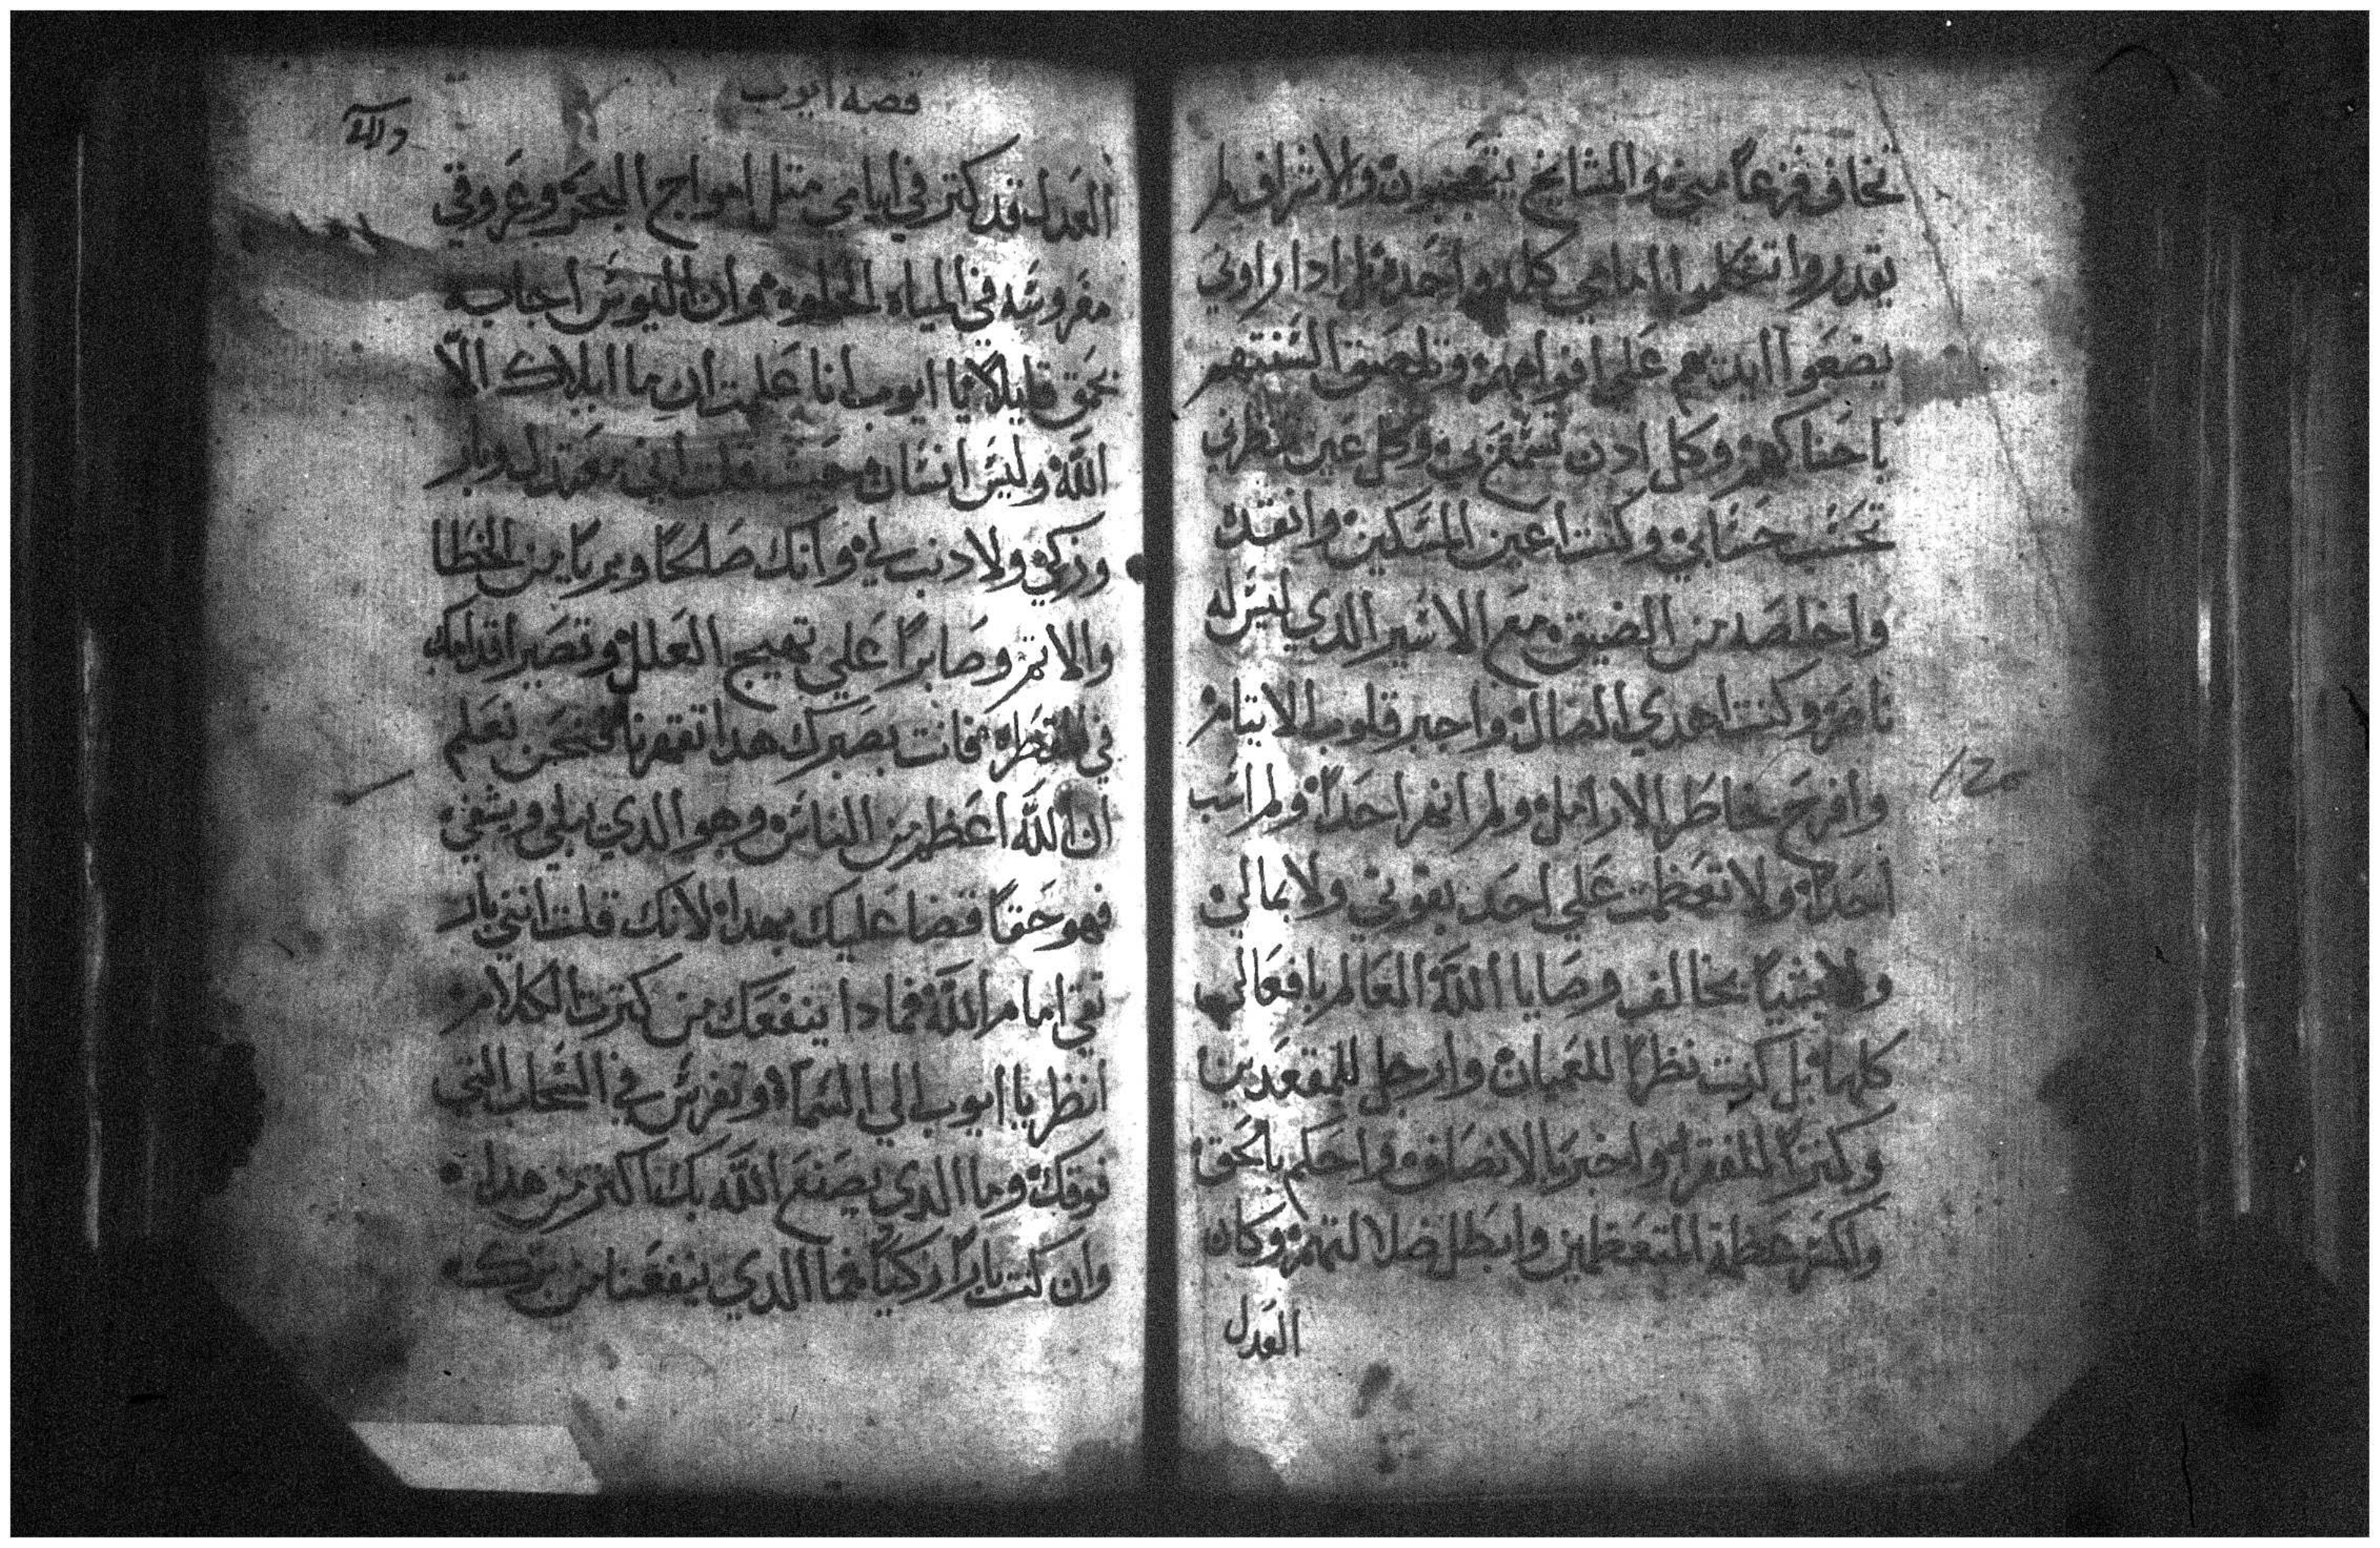 تخاف فزعاً مني والمشايخ يتعجبون والاشراف لم
يقدروا تتكلم امامي كلمه واحده بل ادا راوني
يضعوا ايديهم علي افواههم وتلصق السنتهم
باحناكهم وكل ادن تسمع بي وكل عين تنظرني
تحسب حسابي وكنت اعين المسكين وانقده
واخلصه من الضيق مع الاسير الدي ليس له
ناصر وكنت اهدي الضال واجبر قلوب الايتام
وافرح بخاطر الارامل ولم انهر احداً ولم اسب
احداً ولا تعظمت علي احد بقوتي ولا بمالي
ولا بشياً يخالف وصايا الله العالم بافعالي
كلها بل كنت نظراً للعميان وارجل للمقعدين
وكنزاً للفقرا واخبر بالانصاف واحكم بالحق
واكسر عظمة المتعظمين وابطل ضلالتهم وكان
العدل
قصة ايوب
العدل قد كتر في ايامي متل امواج البحر وعروقي
مغروسه في المياه الحلوه وان اليوس اجابه
بحمق قايلاً يا ايوب انا علمت ان ما ابلاك الا
الله وليس انسان حيث قلت اني معتدل وبار
وزكي ولا دنب لي وانك صالحاً وبرياً من الخطا
والاتم وصابراً علي تهييج العلل وتصير اقدامك
في المقطره فانت بصبرك هدا تقهرنا فنحن نعلم
ان الله اعظم من الناس وهو الدي يبلي ويشفي
فهو حقاً قضا عليك بهدا لانك قلت انني بار
نقي امام الله فمادا ينفعك من كترت الكلام
انظر يا ايوب الي السما وتفرس في السحاب التي
فوقك وما الدي يصنع الله بك باكتر من هدا
وان كنت باراً زكياً فما الدي ينفعنا من برك